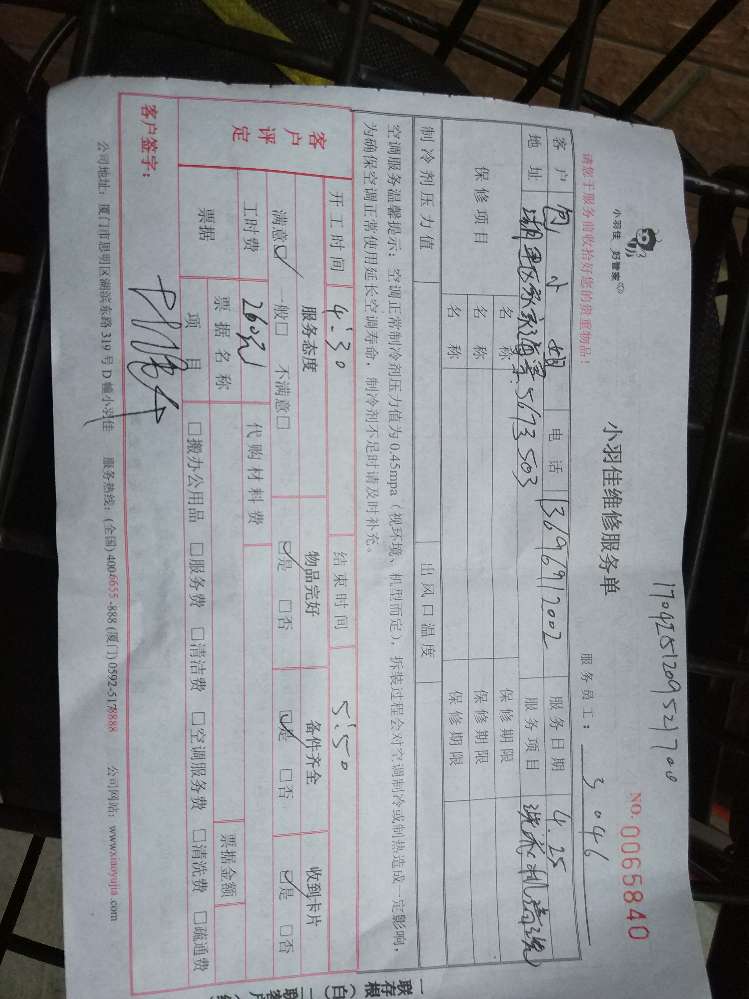 1704251209521700
小羽佳 好管家
小羽佳维修服务单
NO. 0065840
请您于服务前收拾好您的贵重物品！
服务员工： 3046
客户 小姐 电话 13696912002 服务日期 4.25
地址 服务项目 洗衣机清洗
保修项目 名称 保修期限
名称 保修期限
名称 保修期限
制冷剂压力值 出风口温度
空调服务温馨提示：空调正常制冷剂压力值为0.45mpa（视环境、机型而定），拆装过程会对空调制冷或制热造成一定影响，
为确保空调正常使用延长空调寿命，制冷剂不足时请及时补充。
开工时间 4:30 结束时间 5:50
客户评定 服务态度 物品完好 备件齐全 收到卡片
满意☑ 一般□ 不满意□ ☑是 □否 ☑是 □否 ☑是 □否
工时费 260元 代购材料费
票据 票据名称 票据金额
项目 □搬办公用品 □服务费 □清洁费 □空调服务费 □清洗费 □疏通费
客户签字：
公司地址：厦门市思明区湖滨东路319号D幢小羽佳 服务热线：(全国) 4006655-888 (厦门) 0592-5178888 公司网站：www.xiaoyujia.com
一联存根(白)